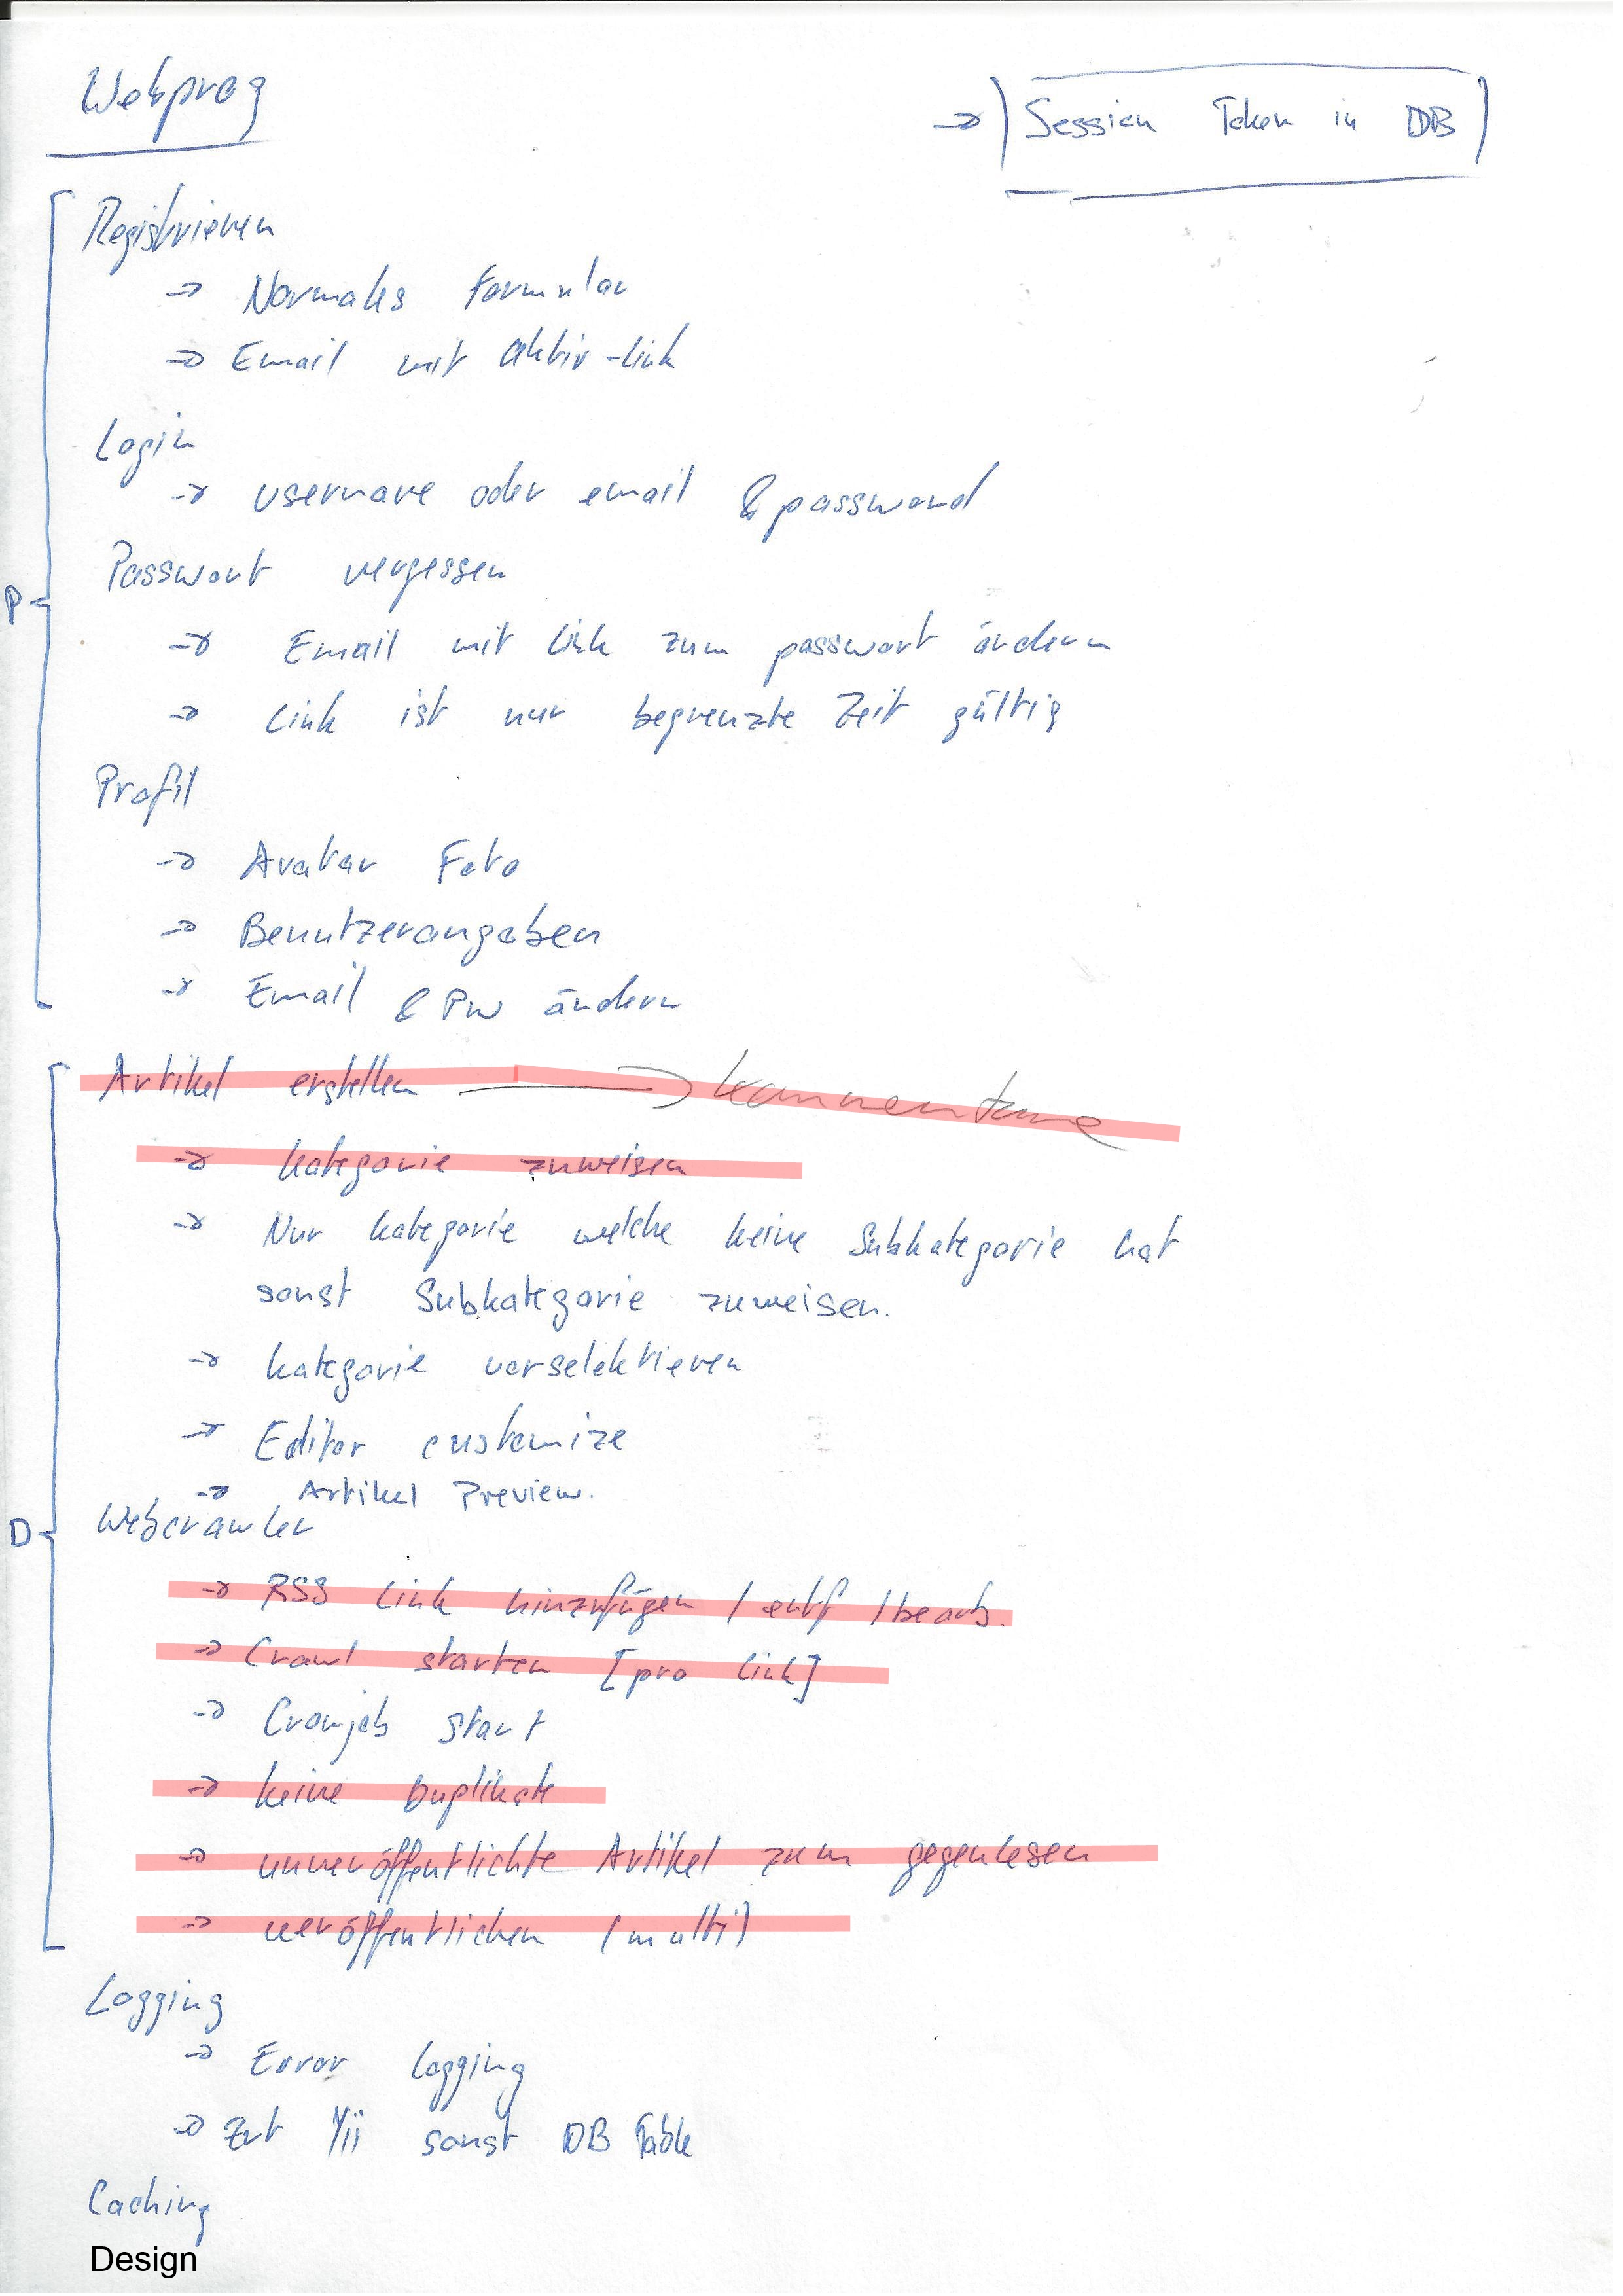 Webprog
→ Session Token in DB
Registrieren
→ Normales Formular
→ Email mit Aktiv-Link
Login
→ username oder email & password
Passwort vergessen
P
→ Email mit Link zum passwort ändern
→ Link ist nur begrenzte Zeit gültig
Profil
→ Avatar Foto
→ Benutzerangaben
→ Email & PW ändern
Artikel erstellen → Kommentare
→ Kategorie zuweisen
→ Nur Kategorie welche keine Subkategorie hat
sonst Subkategorie zuweisen.
→ Kategorie vorselektieren
→ Editor customize
→ Artikel Preview.
D
Webcrawler
→ RSS Link hinzufügen / entf / bearb.
→ Crawl starten [pro Link]
→ Cronjob start
→ keine Duplikate
→ unveröffentlichte Artikel zum gegenlesen
→ veröffentlichen (multi)
Logging
→ Error Logging
→ Yii sonst DB Table
Caching
Design